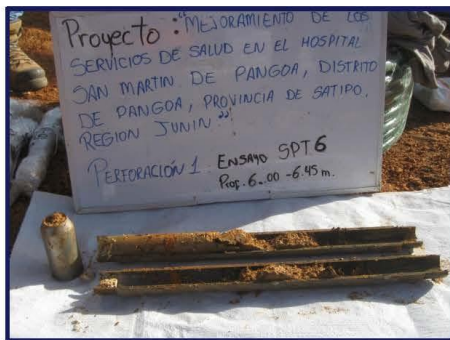 Proyecto : "MEJORAMIENTO DE LOS
SERVICIOS DE SALUD EN EL HOSPITAL
SAN MARTIN DE PANGOA, DISTRITO
DE PANGOA, PROVINCIA DE SATIPO,
REGION JUNIN."
PERFORACIÓN 1 ENSAYO SPT 6
Prof. 6.00 - 6.45 m.